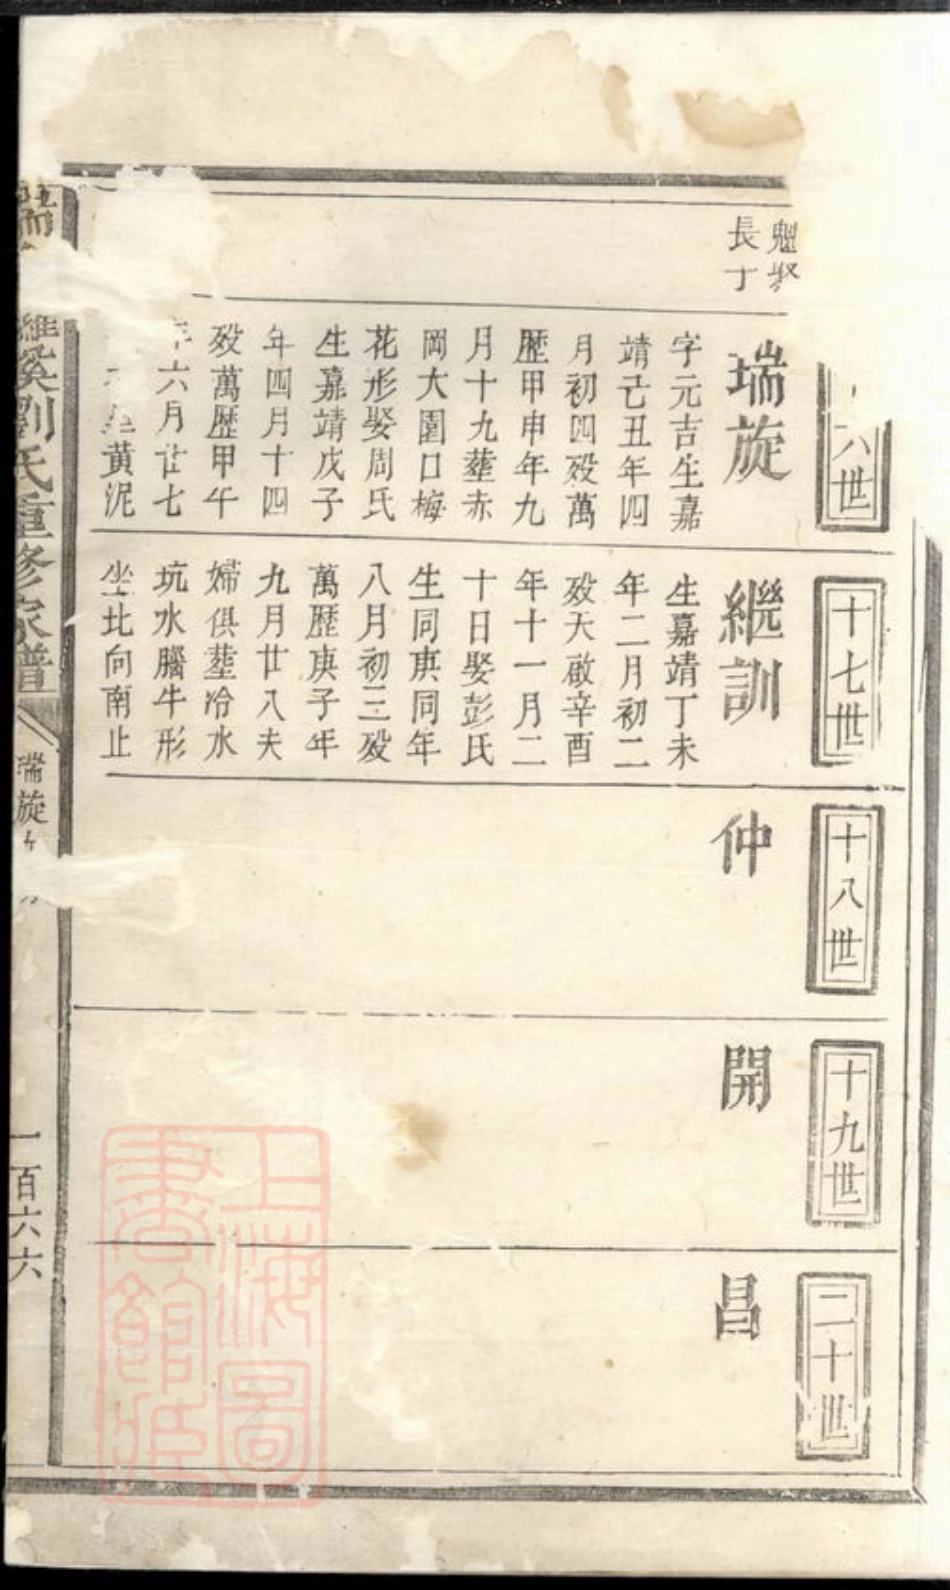 魁娶
長丁
六世
瑞旋
字元吉生嘉
靖己丑年四
月初四殁萬
歷甲申年九
月十九塟赤
岡大園口梅
花形娶周氏
生嘉靖戊子
年四月十四
殁萬歷甲午
年六月廿七
黄泥
十七世
繼訓
生嘉靖丁未
年二月初二
殁天啟辛酉
年十一月二
十日娶彭氏
生同庚同年
八月初三殁
萬歷庚子年
九月廿八夫
婦俱塟冷水
坑水腦牛形
坐北向南止
十八世
仲
十九世
開
二十世
昌
劉氏重修家譜
瑞旋
一百六六
上海圖
書館藏